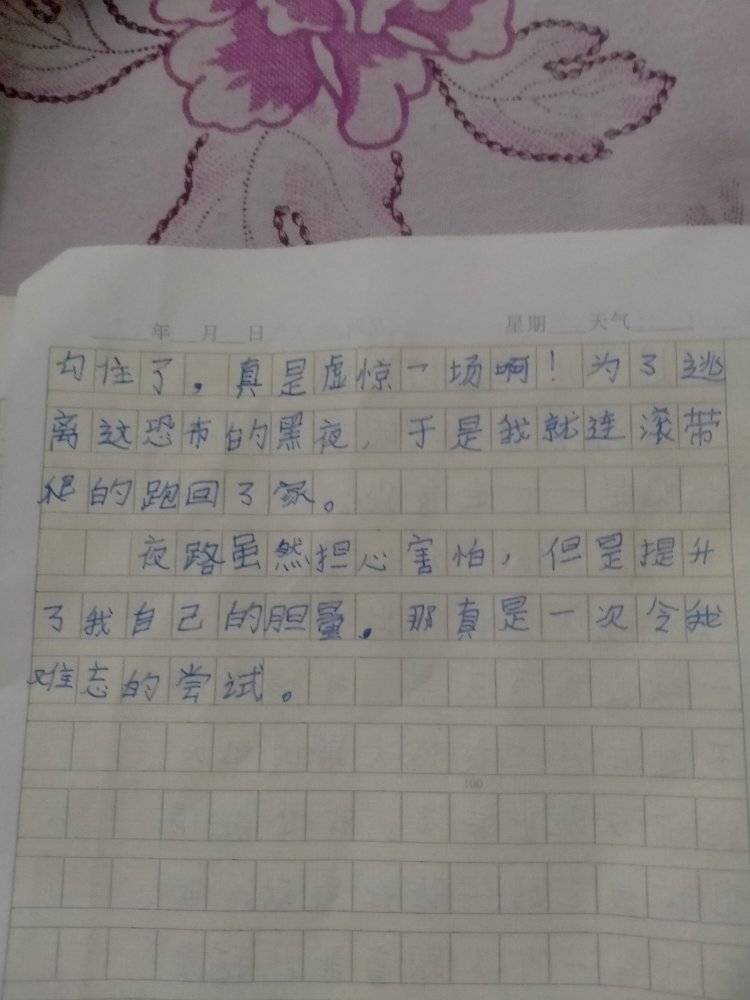 年 月 日 星期 天气
勾住了，真是虚惊一场啊！为了逃
离这恐布的黑夜，于是我就连滚带
爬的跑回了家。
夜路虽然担心害怕，但是提升
了我自己的胆量。那真是一次令我
难忘的尝试。
100